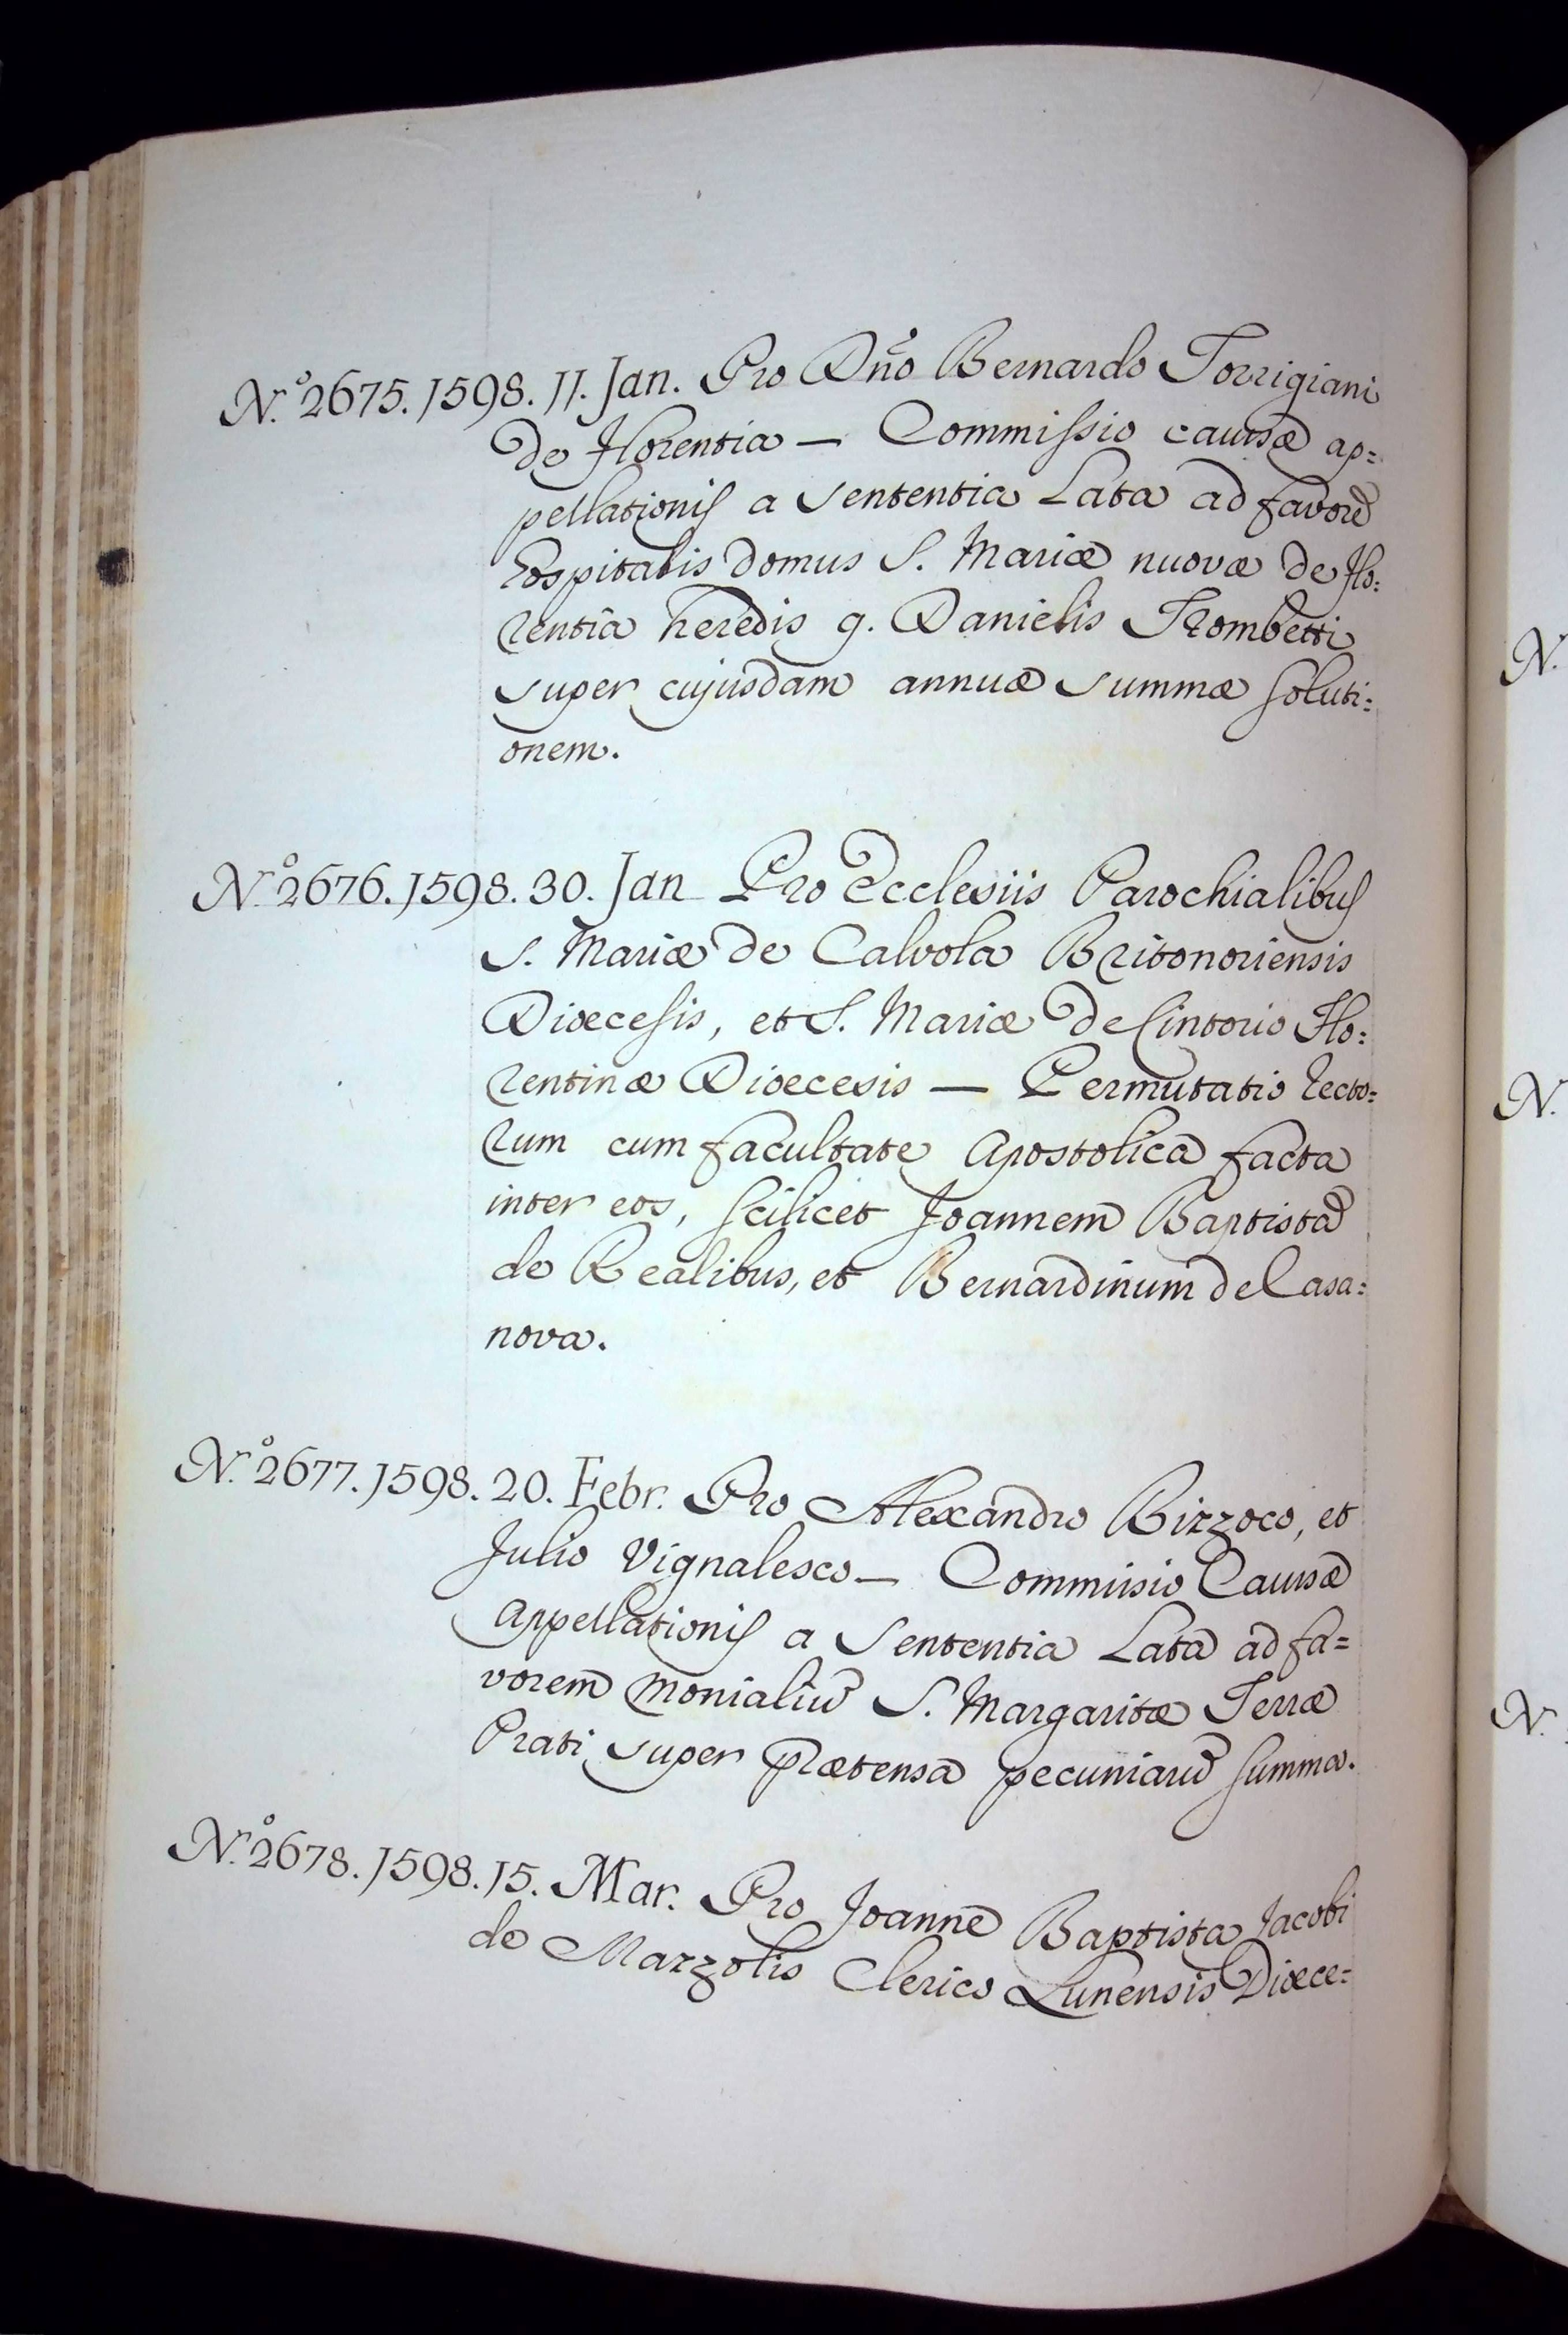 N.º 2675. 1598. 11. Jan. Pro Dño Bernardo Torrigiani
de Florentia — Commissio causæ ap=
pellationis a sententia Lata ad favorẽ
hospitalis domus S. Mariæ nuovæ de Flo:
rentia heredis q. Danielis Trombetti
super cujusdam annuæ summæ soluti:
onem.
N.º 2676. 1598. 30. Jan Pro Ecclesiis Parochialibus
S. Mariæ de Calvola Britonoriensis
Diœcesis, et S. Mariæ de Cintorio Flo:
rentinæ Diœcesis — Permutatio recto=
rum cum facultate Apostolica facta
inter eos, scilicet Joannem Baptistã
de Realibus, et Bernardinum de Casa=
nova.
N.º 2677. 1598. 20. Febr. Pro Alexandro Bizzoco, et
Julio Vignalesco — Commissio Causæ
Appellationis a Sententia Lata ad fa=
vorem Monialiũ S. Margaritæ Terræ
Prati super prætensa pecuniarũ summa.
N.º 2678. 1598. 15. Mar. Pro Joanne Baptista Jacobi
de Mazzolis Clerico Lunensis Diœce=
N.
N.
N.